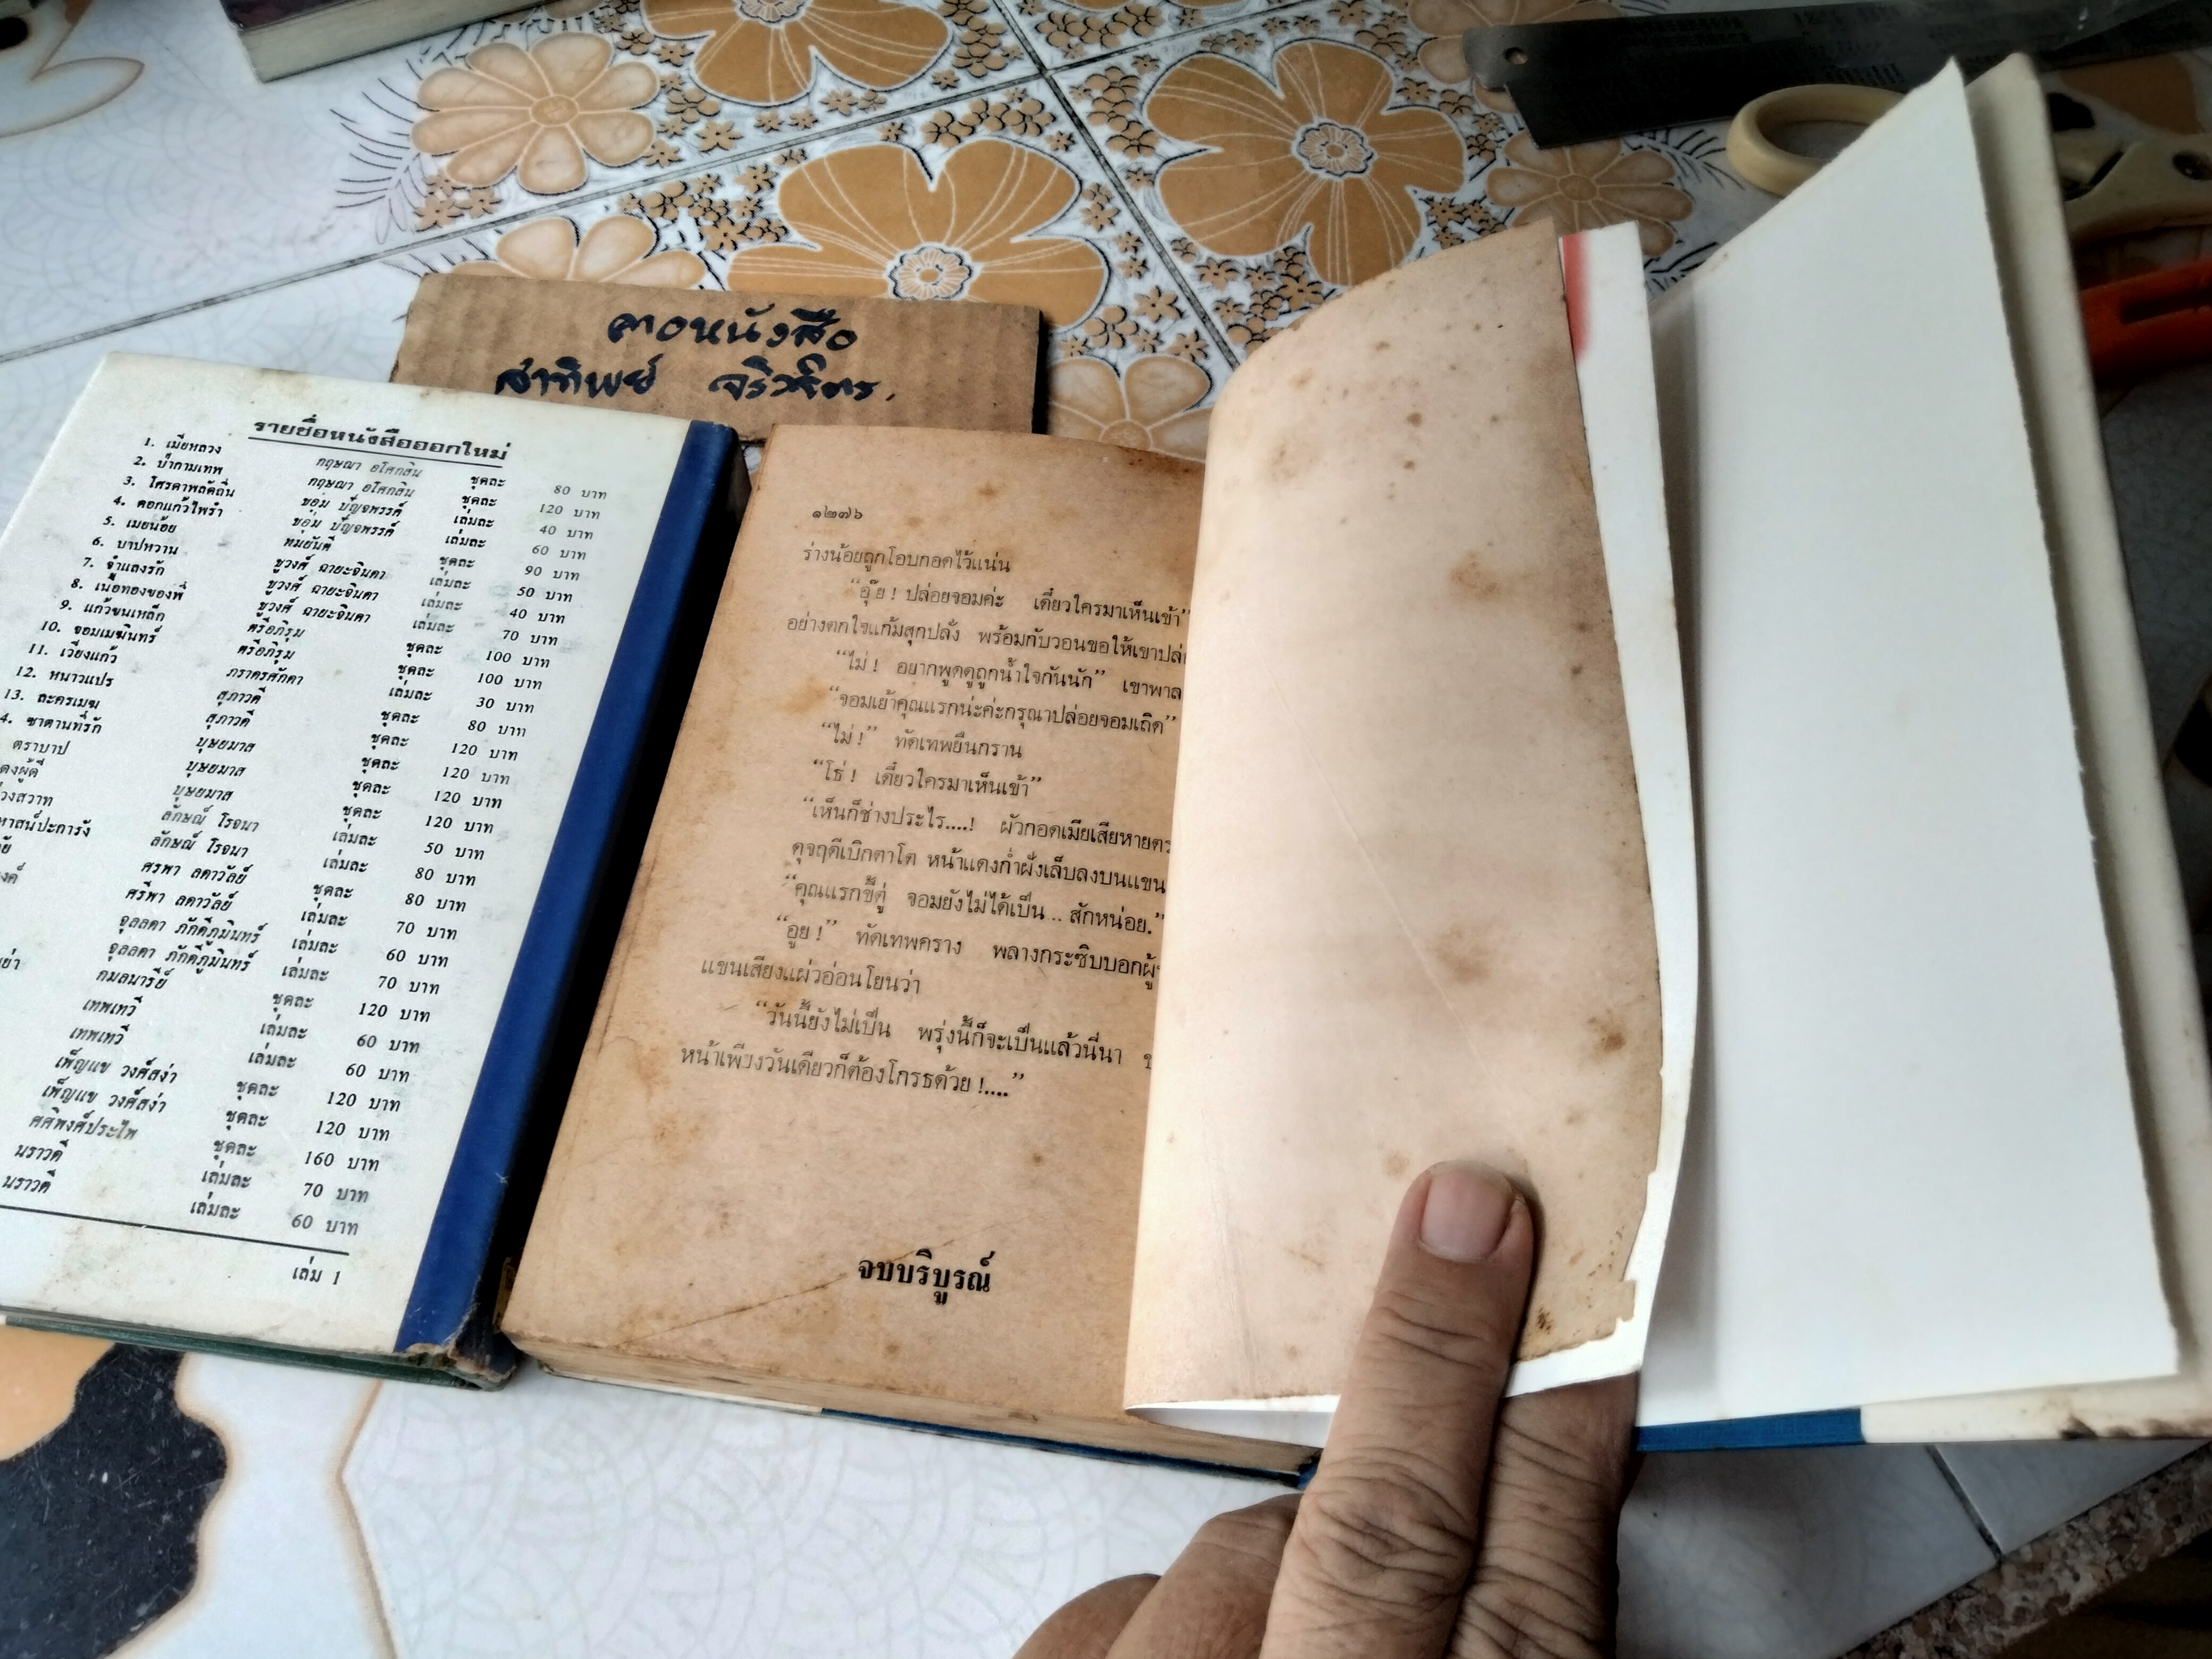 คาดหนังสือ
สาทิพย์
รายชื่อหนังสือออกใหม่
1. เมียหลวง กฤษณา อโศกสิน ชุดละ 80 บาท
2. ป่ากามเทพ กฤษณา อโศกสิน ชุดละ 120 บาท
3. โศรดาพลัดถิ่น ขอม ปัญจพรรค์ เล่มละ 40 บาท
4. ดอกแก้วไพรำ ขอม ปัญจพรรค์ เล่มละ 60 บาท
5. เมียน้อย ทมยันตี ชุดละ 90 บาท
6. บาปหวาน ชูวงศ์ ฉายะจินดา เล่มละ 50 บาท
7. จำแลงรัก ชูวงศ์ ฉายะจินดา เล่มละ 40 บาท
8. เนื้อทองของพี่ ชูวงศ์ ฉายะจินดา เล่มละ 70 บาท
9. แก้วขนเหล็ก ตรีอภิรุม ชุดละ 100 บาท
10. จอมเมฆินทร์ ตรีอภิรุม ชุดละ 100 บาท
11. เวียงแก้ว ภราดรศักดา เล่มละ 30 บาท
12. หนาวแปร สุภาวดี ชุดละ 80 บาท
13. ละครเมฆ สุภาวดี ชุดละ 120 บาท
4. ซาตานที่รัก บุษยมาส ชุดละ 120 บาท
ตราบาป บุษยมาส ชุดละ 120 บาท
ดงผู้ดี บุษยมาส ชุดละ 120 บาท
วงสวาท ลักษณ์ โรจนา เล่มละ 50 บาท
หาสน์ปะการัง ลักษณ์ โรจนา เล่มละ 80 บาท
ศรีพา ลดาวัลย์ ชุดละ 80 บาท
ศรีพา ลดาวัลย์ เล่มละ 70 บาท
จุลลดา ภักดีภูมินทร์ เล่มละ 60 บาท
จุลลดา ภักดีภูมินทร์ เล่มละ 70 บาท
กมลนารีย์ ชุดละ 120 บาท
เทพเทวี เล่มละ 60 บาท
เทพเทวี เล่มละ 60 บาท
เพ็ญแข วงศ์สง่า ชุดละ 120 บาท
เพ็ญแข วงศ์สง่า ชุดละ 120 บาท
ศศิพงศ์ประไพ ชุดละ 160 บาท
นราวดี เล่มละ 70 บาท
นราวดี เล่มละ 60 บาท
เล่ม 1
๑๒๗๖
ร่างน้อยถูกโอบกอดไว้แน่น
“อุ๊ย ! ปล่อยจอมค่ะ เดี๋ยวใครมาเห็นเข้า”
อย่างตกใจแก้มสุกปลั่ง พร้อมกับวอนขอให้เขาปล่
“ไม่ ! อยากพูดดูถูกน้ำใจกันนัก” เขาพาล
“จอมเย้าคุณแรกน่ะค่ะกรุณาปล่อยจอมเถิด”
“ไม่ !” ทัดเทพยืนกราน
“โธ่ ! เดี๋ยวใครมาเห็นเข้า”
“เห็นก็ช่างประไร....! ผัวกอดเมียเสียหายตร
ดุจฤดีเบิกตาโต หน้าแดงก่ำฝังเล็บลงบนแขน
“คุณแรกขี้ตู่ จอมยังไม่ได้เป็น .. สักหน่อย.”
“อูย !” ทัดเทพคราง พลางกระซิบบอกผู้
แขนเสียงแผ่วอ่อนโยนว่า
“วันนี้ยังไม่เป็น พรุ่งนี้ก็จะเป็นแล้วนี่นา
หน้าเพียงวันเดียวก็ต้องโกรธด้วย !....”
จบบริบูรณ์